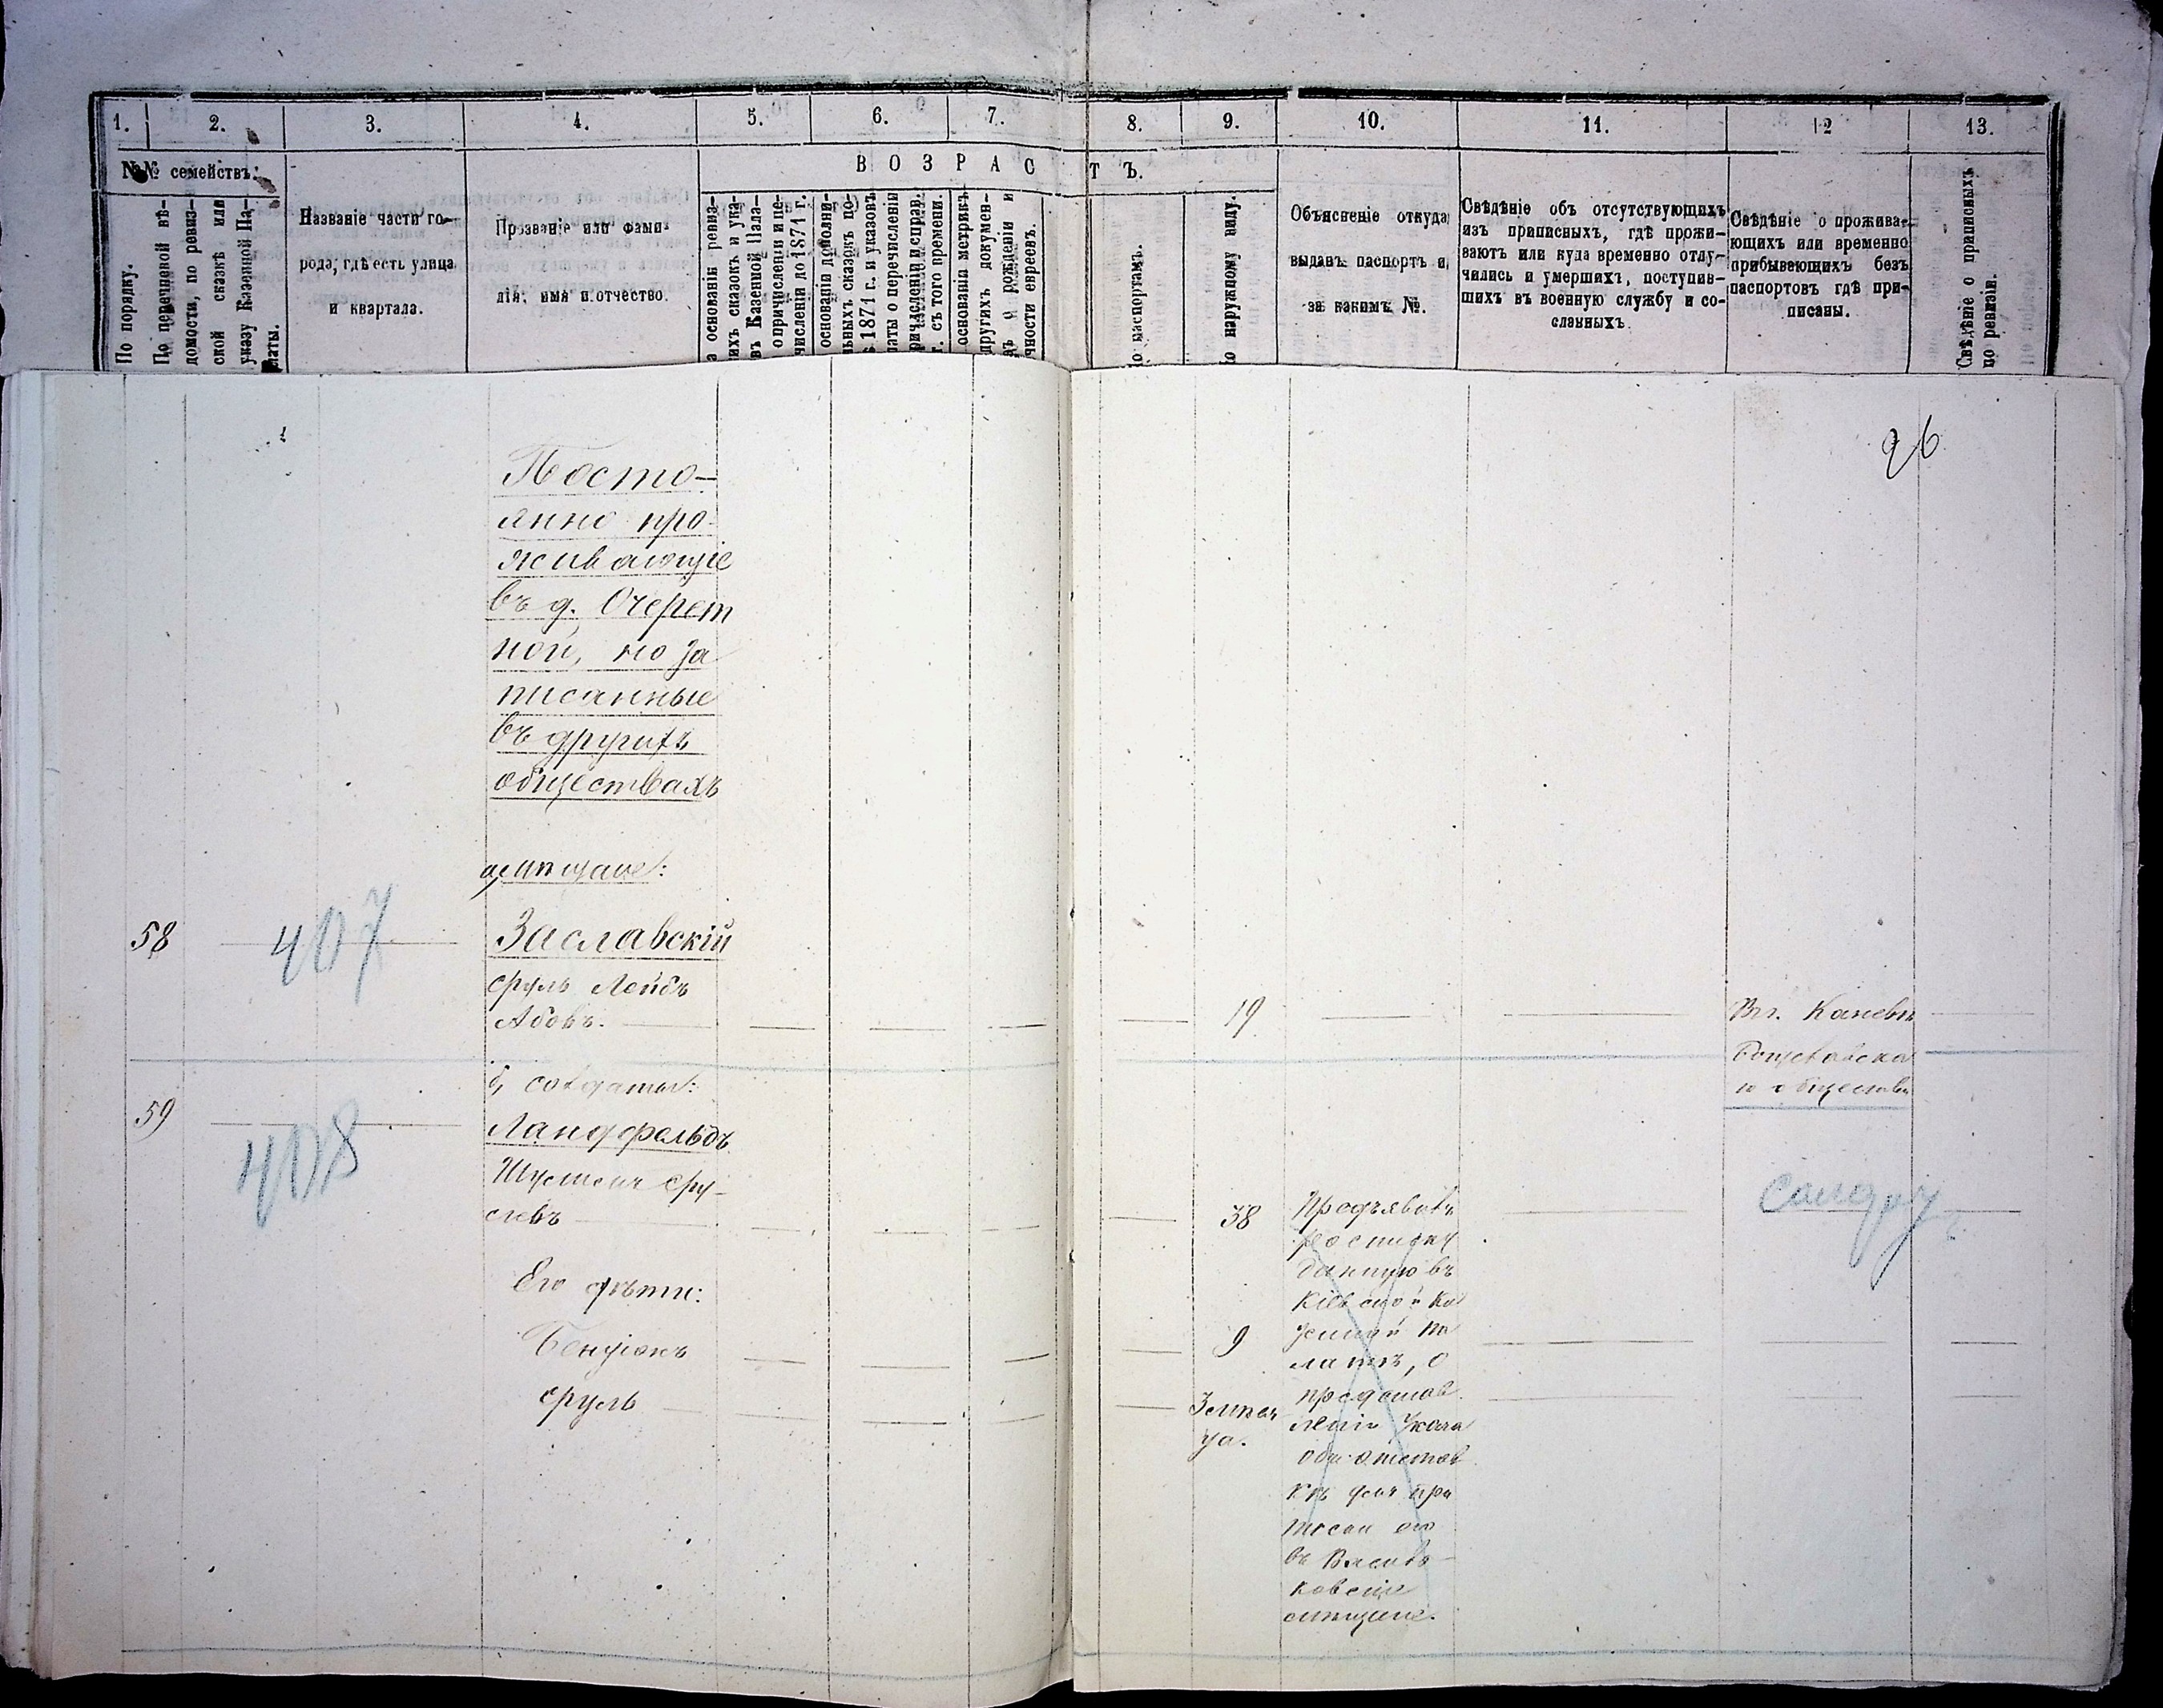 1. 2. 3. 4. 5. 6. 7. 8. 9. 10. 11. 12 13.
№№ семействъ.
По порядку.
По перечневой вѣ-
домости, по ревиз-
ской сказкѣ или
указу Казенной Па-
латы.
Названіе части го-
рода, гдѣ есть улица
и квартала.
Прозваніе или фами-
лія, имя и отчество.
ВОЗРАСТЪ.
а основаніи ревиз-
ихъ сказокъ и ука-
въ Казенной Пала-
о причисленіи и пе-
численіи до 1871 г.
основаніи дополни-
льныхъ сказокъ по-
ѣ 1871 г. и указовъ
латы о перечисленіи
ричисленіи и справ.
г. съ того времени.
основаніи метрикъ
другихъ докумен-
въ о рожденіи и
чности евреевъ.
о паспортамъ.
о наружному виду.
Объясненіе откуда
выданъ паспортъ и
за какимъ №.
Свѣдѣніе объ отсутствующихъ
изъ приписныхъ, гдѣ прожи-
ваютъ или куда временно отлу-
чились и умершихъ, поступив-
шихъ въ военную службу и со-
сланныхъ.
Свѣдѣніе о прожива-
ющихъ или временно
прибывеющихъ безъ
паспортовъ гдѣ при-
писаны.
Свѣдѣніе о приписныхъ
по ревизіи.
26
Посто-
янно про-
живающіе
въ д. Очерет
ной, но за
писанные
въ другихъ
обществахъ
а, мѣщане:
58
407
Заславскій
Сруль Лейбъ
Абовъ.
19
Въ г. Каневѣ
Богуславска
го обществѣ
б, солдаты:
59
408
Ландфельдъ
Сру-
левъ
38
Его дѣти:
Бенціонъ
9
Сруль
3 мѣся
ца.
Предъявилъ
росписку
данную въ
Кіевской Ка
зенной Па
латѣ, о
представ
леніи Указа
объ отстав
кѣ для при
писки его
въ Василь
ковскіе
мѣщане.
солдат